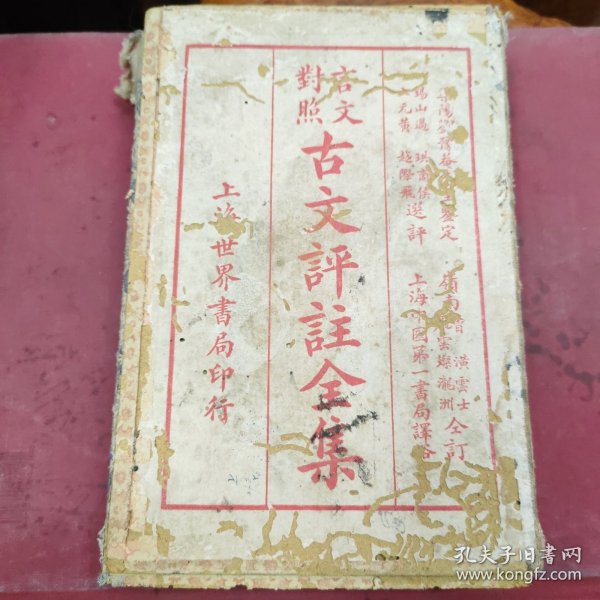 錫山過 珙商侯
黃 越際飛 選評
鑒定
嶺南
潢雲士
瀧洲 仝訂
上海 國第一書局譯
言文對照
古文評註全集
上海世界書局印行
孔夫子旧书网
www.kongfz.com